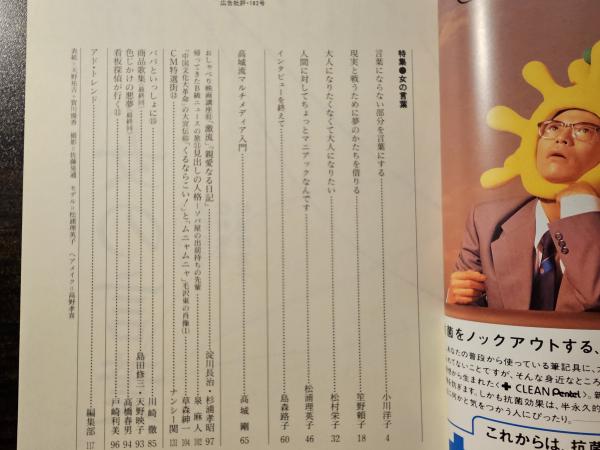 広告批評・183号
特集●女の言葉
言葉にならない部分を言葉にする……小川洋子 4
現実と戦うために夢のかたちを借りる……笙野頼子 18
大人になりたくなくて大人になりたい……松村栄子 32
人間に対してちょっとマニアックなんです……松浦理英子 46
インタビューを終えて……島森路子 60
高城流マルチメディア入門……高城 剛 65
おしゃべり映画講座㉒「激流」「親愛なる日記」……淀川長治・杉浦孝昭 97
帰ってきたB級ニュースの旅⑪見出しの人格―ソバ屋の出前持ちの先輩……泉 麻人 102
「中国文化大革命」の大宣伝㊻「くるならこい!」と、「ムニャムニャ」毛沢東の肖像(1)……草森紳一
CM特選街……ナンシー関 131
パパといっしょに……川崎 徹 85
商品歌集(最終回)……島田修三・天野映子 93
色じかけの悪夢(最終回)……高橋春男 94
看板探偵が行く……戸崎利美 96
アド・トレンド……編集部 117
表紙=天野祐吉+宮川優香 撮影=佐藤晃通 モデル=松浦理英子 ヘアメイク=高野孝喜
菌をノックアウトする、
あなたの普段から使っている筆記具に、
れてないことですが、そんな身近なところ
から生まれたく CLEAN Pentel〉。
を防ぎます。しかも抗菌効果は、半永久的
に何かと気をつかう人にぴったり。
これからは、抗菌